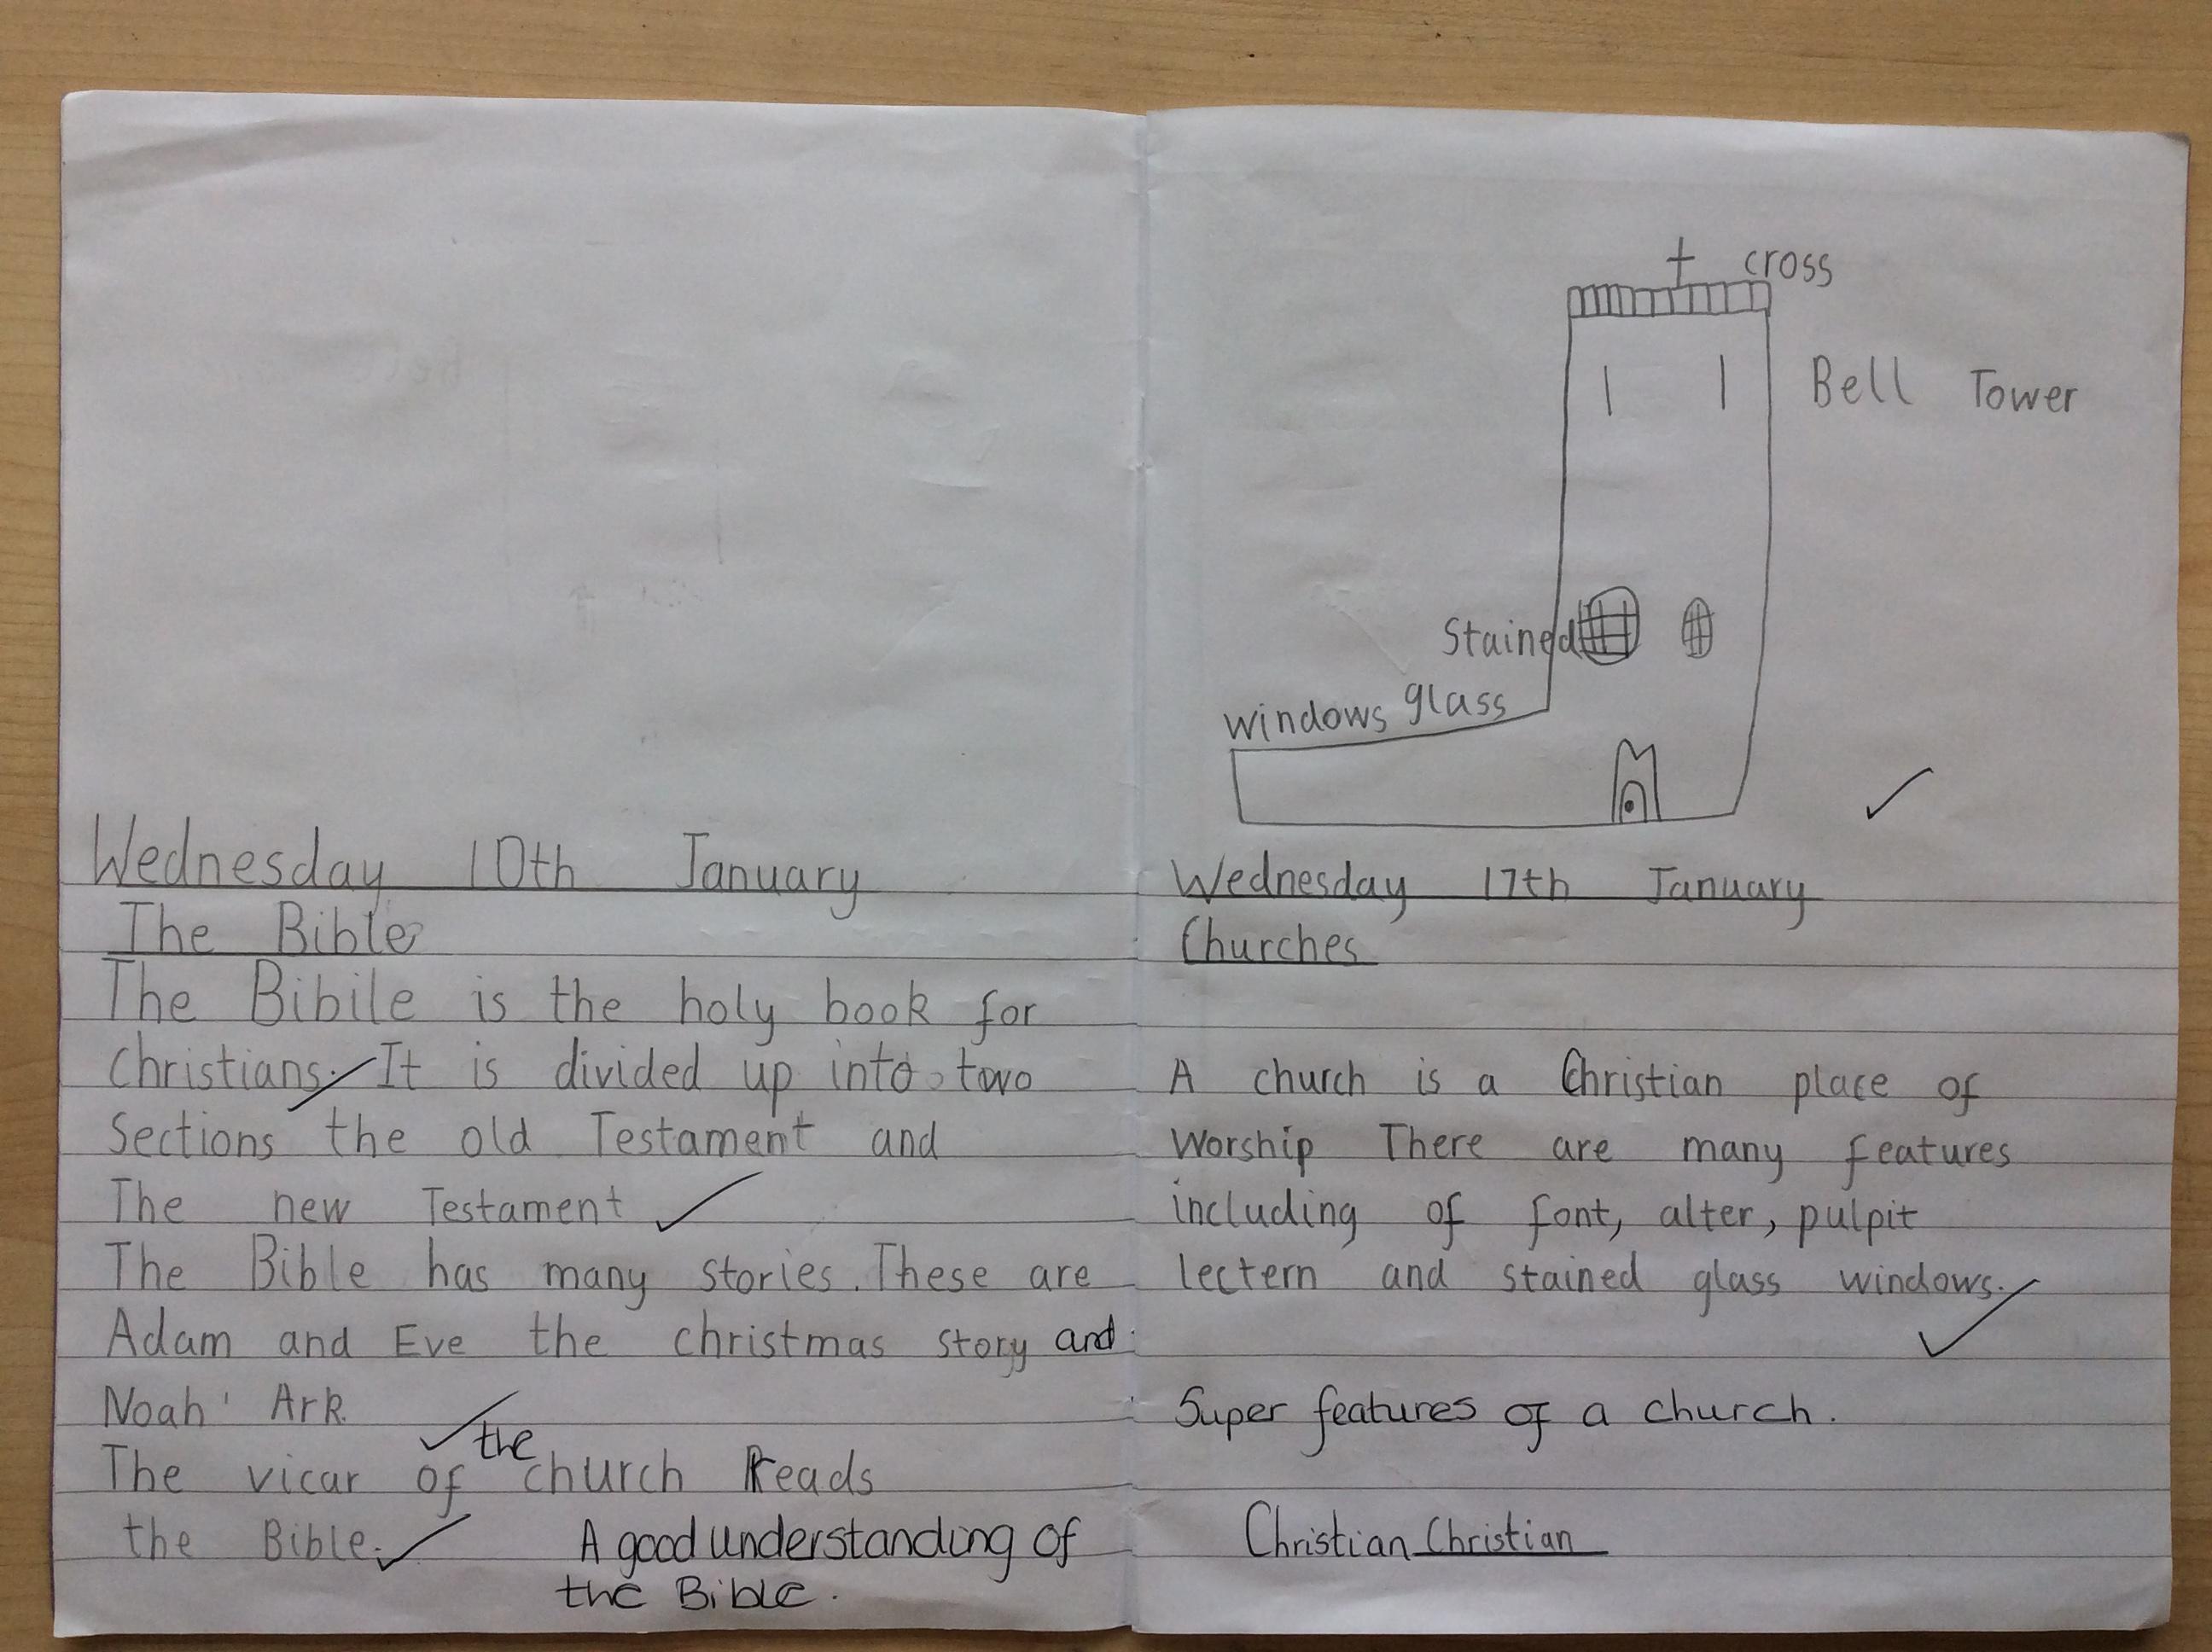 Wednesday 10th January
The Bible
The Bibile is the holy book for
christians. It is divided up into two
Sections the old Testament and
The new Testament
The Bible has many stories. These are
Adam and Eve the christmas story and
Noah' Ark
The vicar of the church Reads
the Bible.
A good understanding of
the Bible.
cross
Bell Tower
Stained
windows glass
Wednesday 17th January
Churches
A church is a Christian place of
worship There are many features
including of font, alter, pulpit
lectern and stained glass windows.
Super features of a church.
Christian Christian